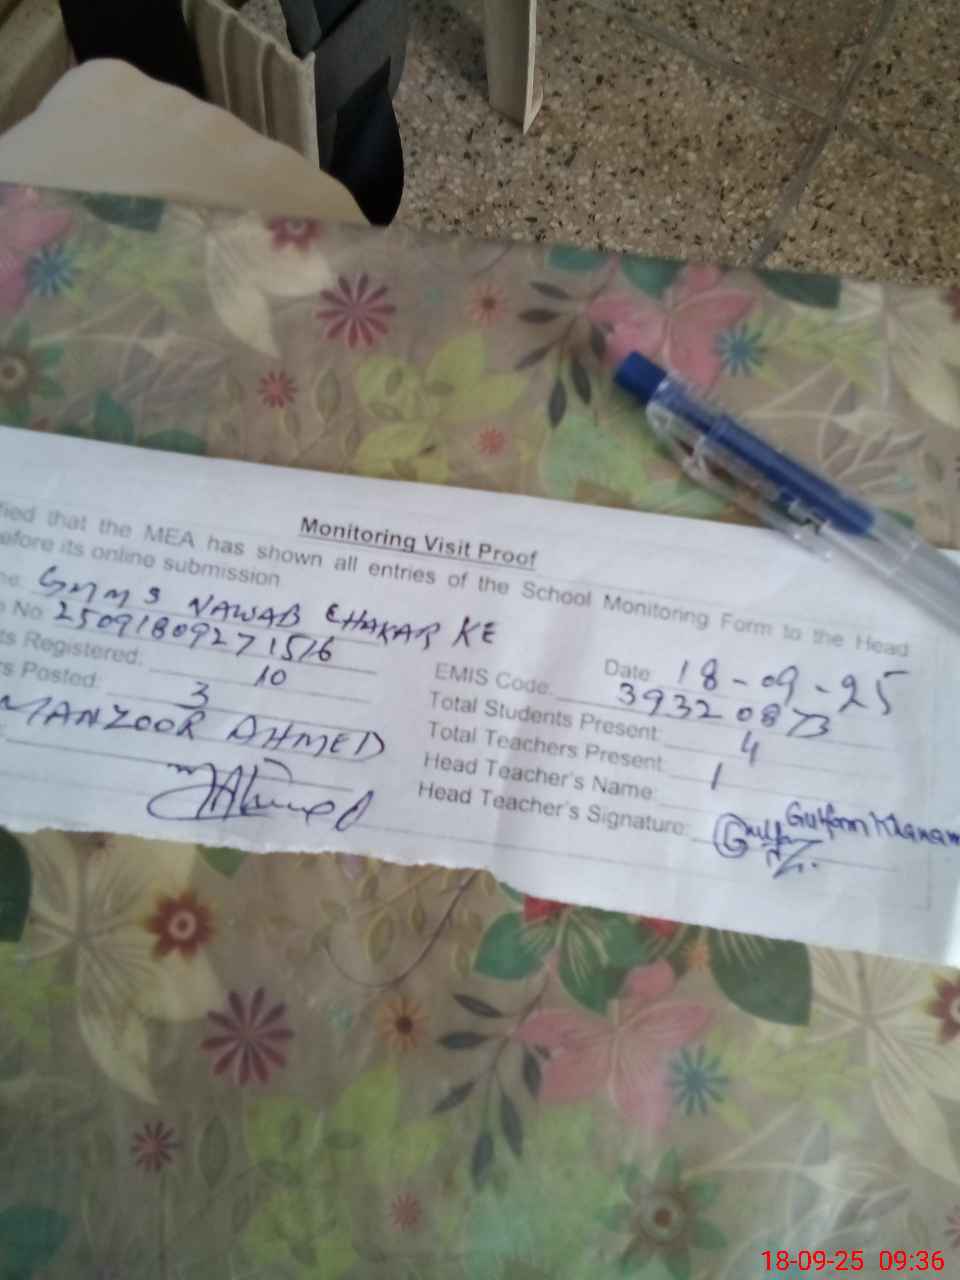 Monitoring Visit Proof
fied that the MEA has shown all entries of the School Monitoring Form to the Head
efore its online submission
me: GMMS NAWAB CHAKAR KE Date 18-09-25
No 2509180927 1516 EMIS Code: 39320873
ts Registered: 10 Total Students Present: 4
rs Posted: 3 Total Teachers Present: 1
MANZOOR AHMED Head Teacher's Name: Gulfam Khanam
Head Teacher's Signature:
18-09-25 09:36